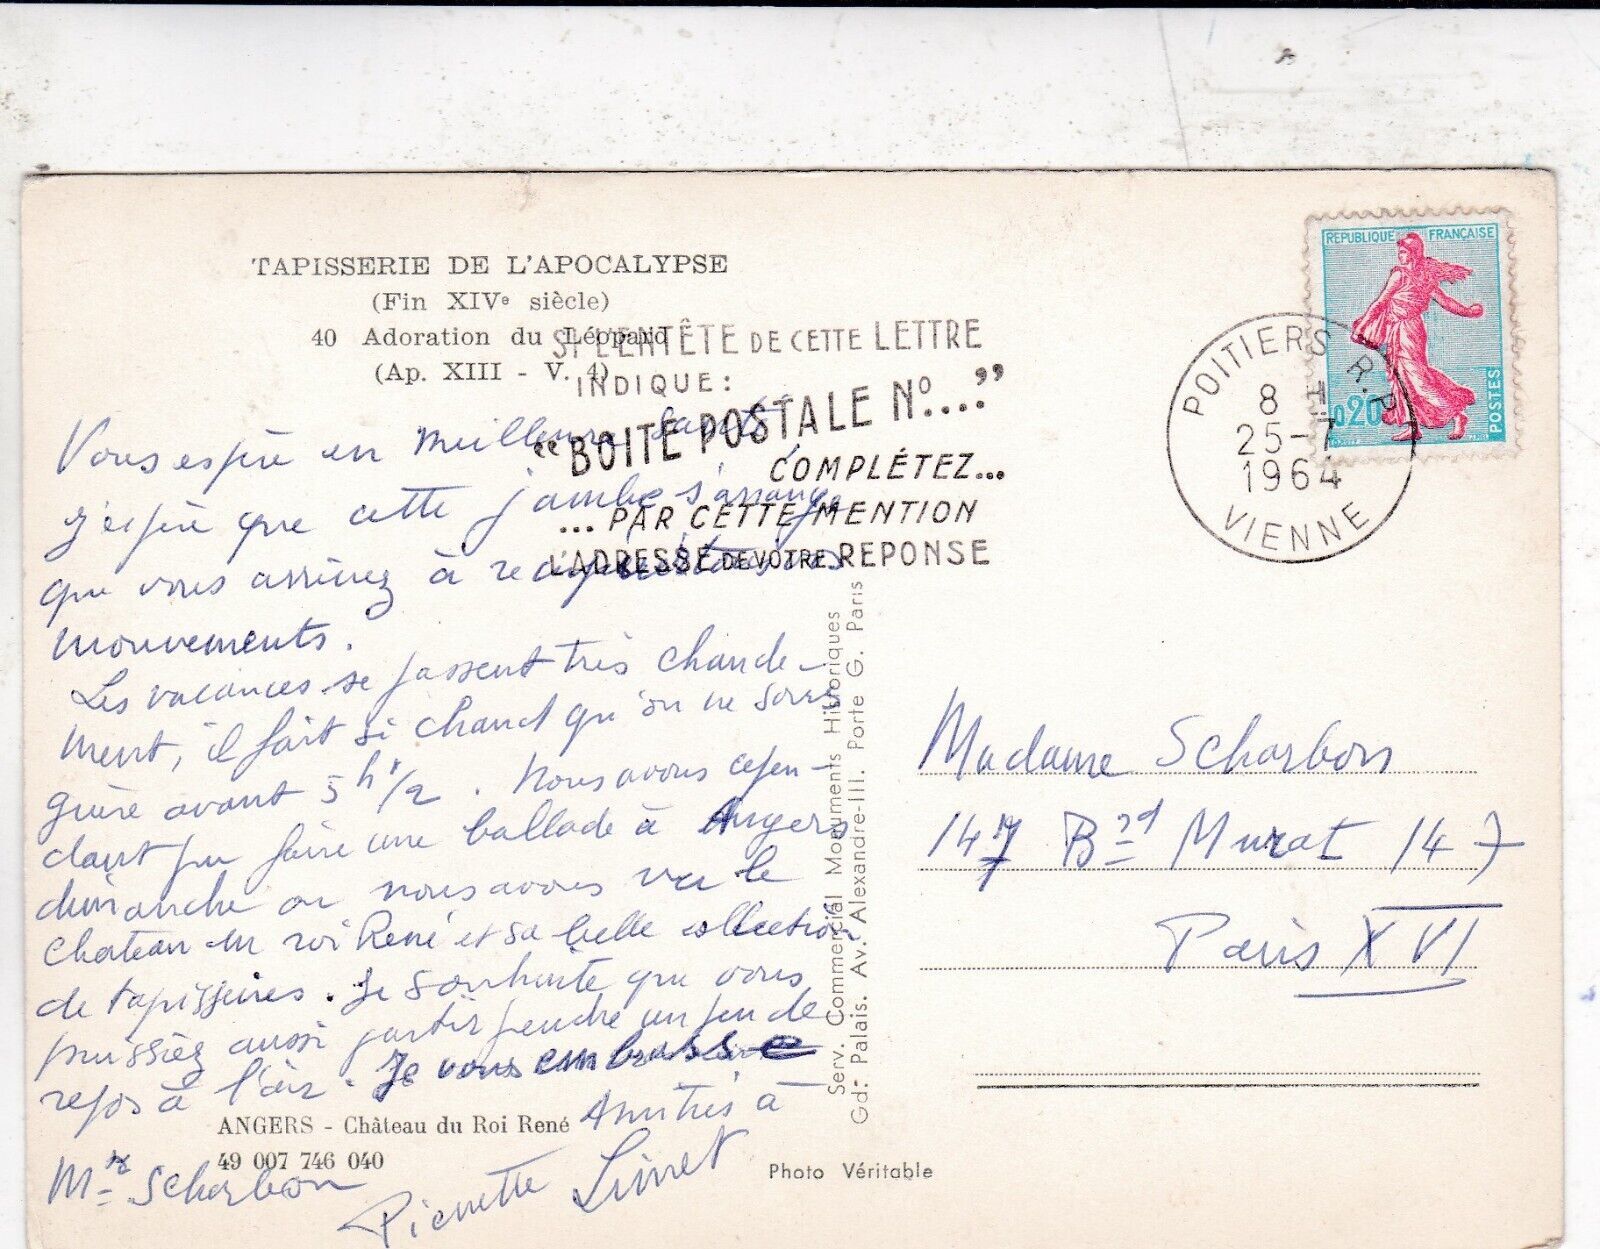 TAPISSERIE DE L'APOCALYPSE
(Fin XIVe siècle)
40 Adoration du Léopard
(Ap. XIII - V. 4)
SI L'ENTÊTE DE CETTE LETTRE
INDIQUE:
"BOITE POSTALE No...."
COMPLÉTEZ...
... PAR CETTE MENTION
L'ADRESSE DE VOTRE REPONSE
POITIERS R.P.
8 H
25-7
1964
VIENNE
REPUBLIQUE FRANÇAISE
0,20
POSTES
Vous espère en meilleure santé,
j'espère que cette jambe s'arrange
que vous arrivez à
mouvements.
Les vacances se passent très chaude-
ment, il fait si chaud qu'on ne sort
guère avant 5h 1/2. Nous avons cepen-
dant pu faire une ballade à Angers
dimanche ou nous avons vu le
chateau du roi René et sa belle collection
de tapisseries. Je souhaite que vous
puissiez aussi partir prendre un peu de
repos à l'air. Je vous embrasse
Amitiés à
Mr Scharbon
Pierrette Linet
ANGERS - Château du Roi René
49 007 746 040
Photo Véritable
Serv. Commercial Monuments Historiques
Gd. Palais. Av. Alexandre-III. Porte G. Paris
Madame Scharbon
147 Bd Murat 147
Paris XVI